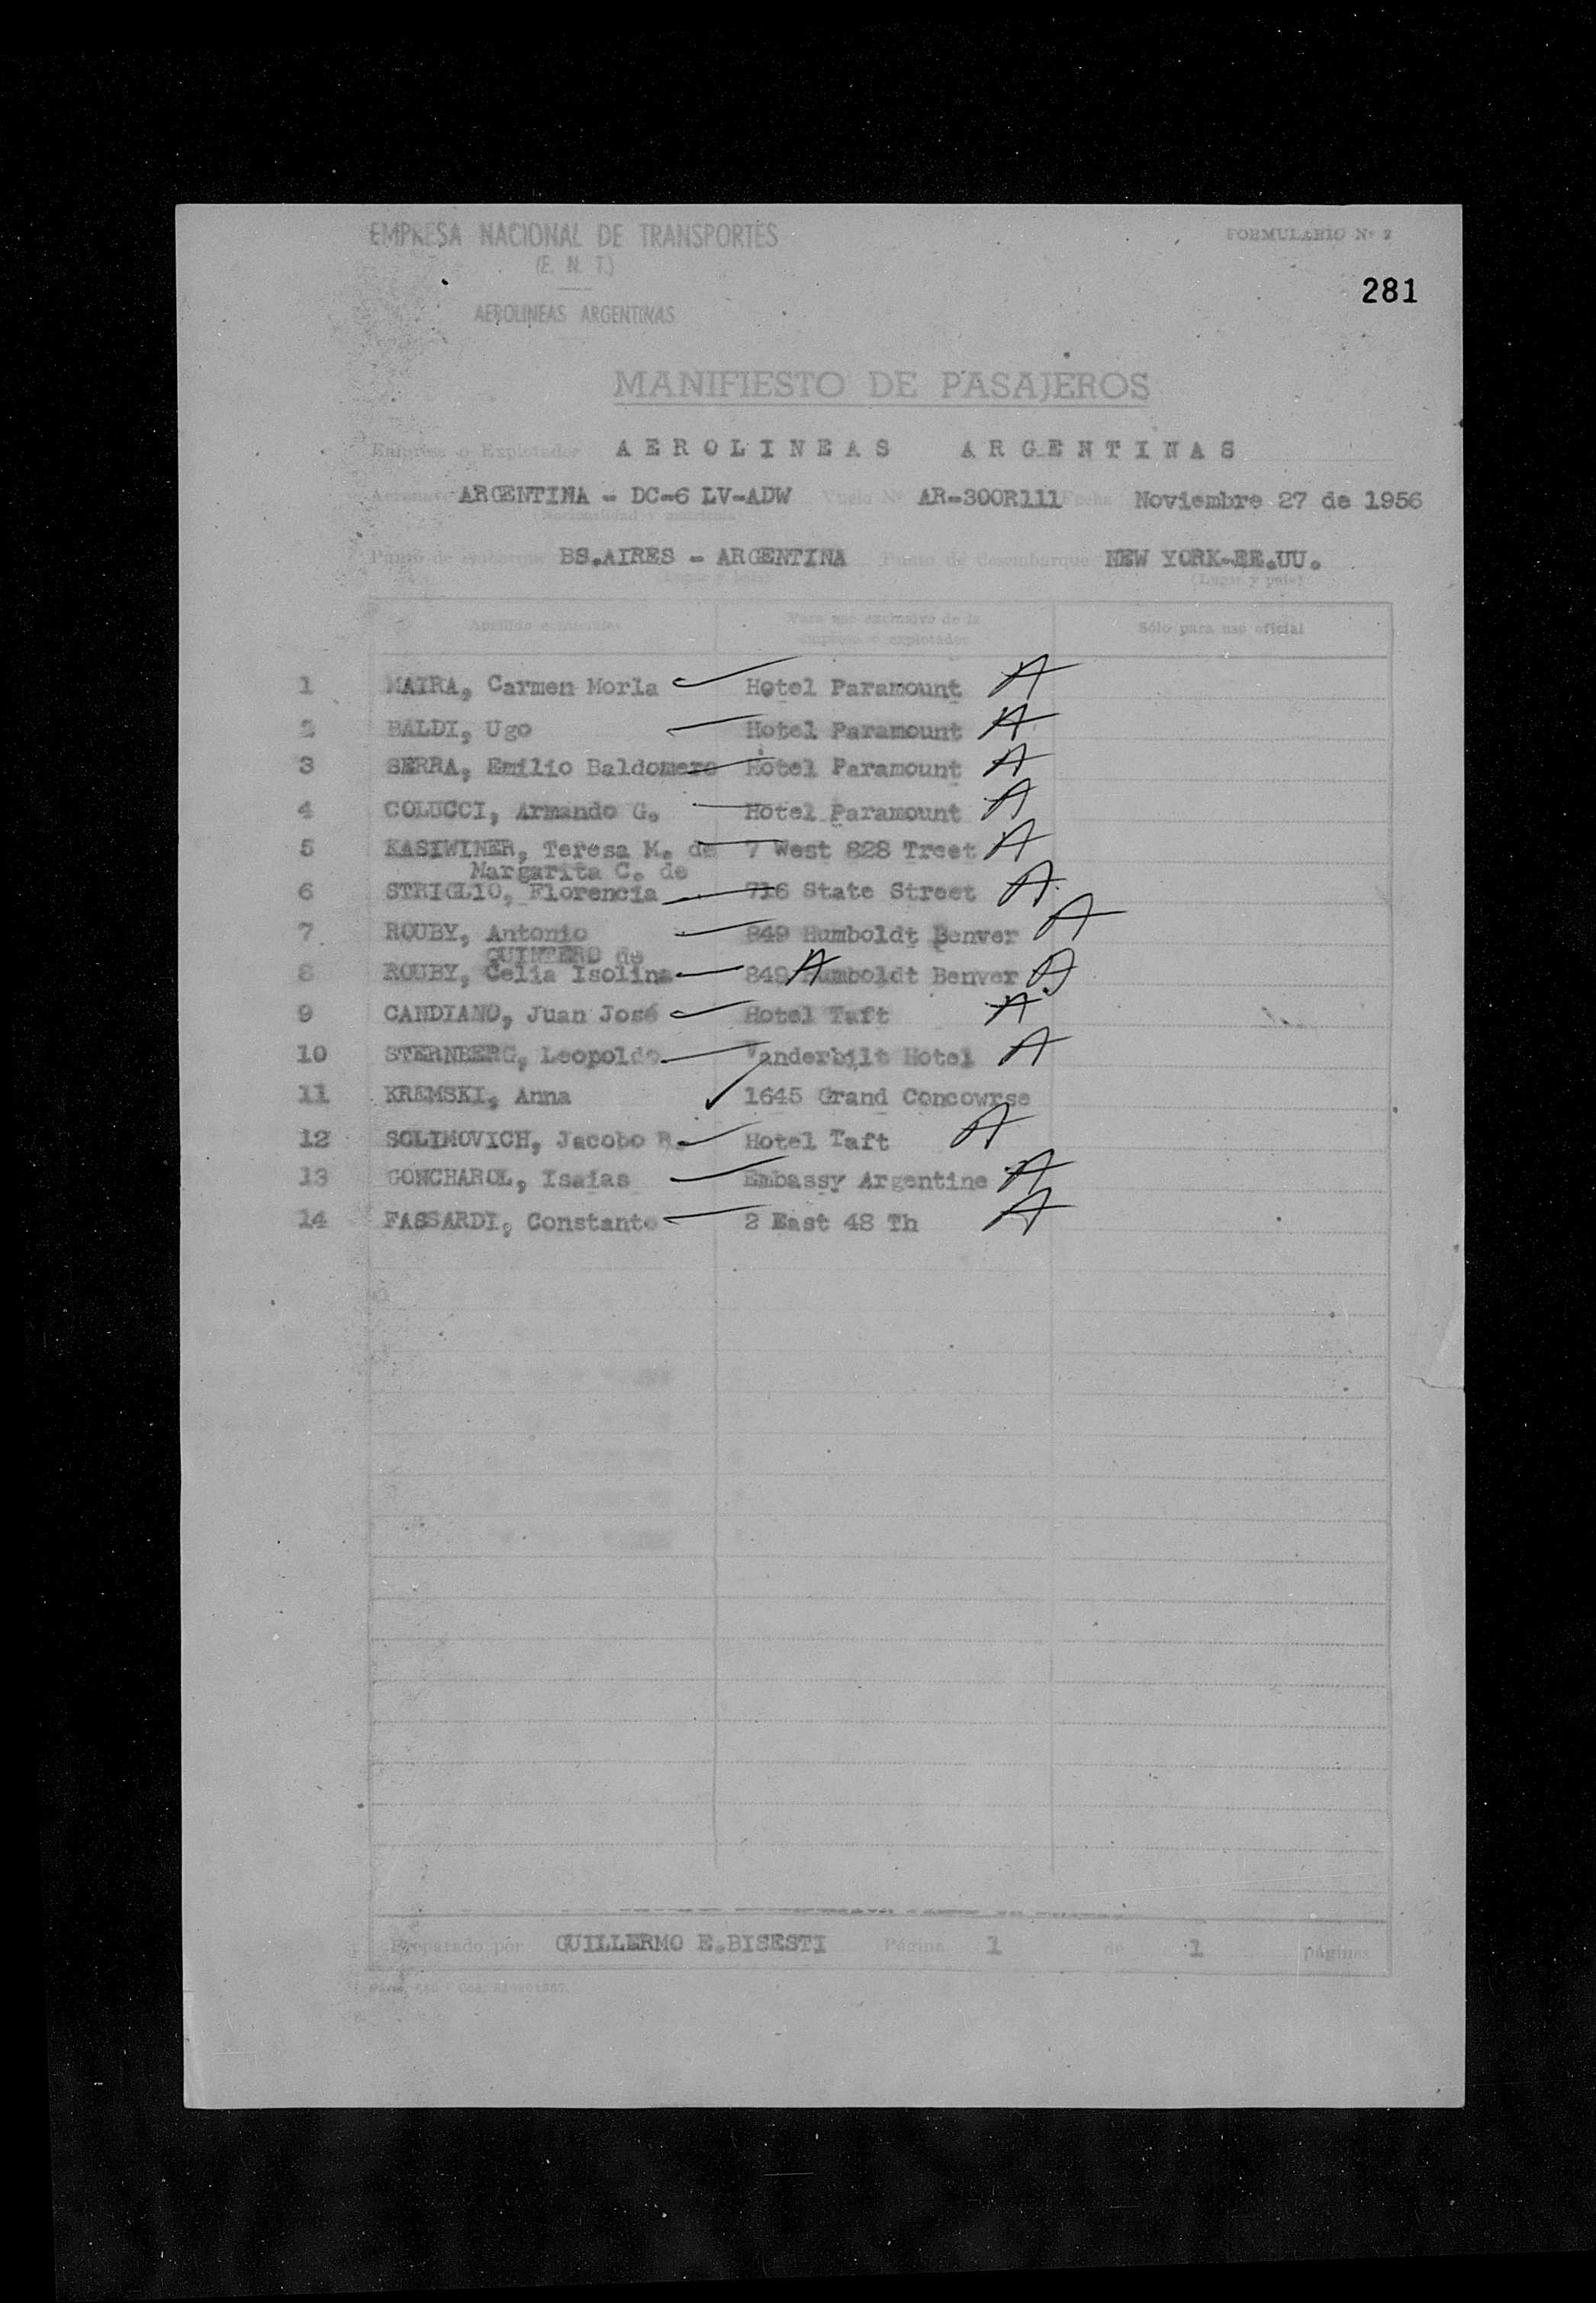 EMPRESA NACIONAL DE TRANSPORTES
FORMULARIO Nº 2
(E. N. T.)
281
AEROLINEAS ARGENTINAS
MANIFIESTO DE PASAJEROS
Empresa o Explotador AEROLINEAS ARGENTINAS
Aeronave ARGENTINA - DC-6 LV-ADW Vuelo Nº AR-300R111 Fecha Noviembre 27 de 1956
(Nacionalidad y matrícula)
Punto de embarque BS.AIRES - ARGENTINA Punto de desembarque NEW YORK-EE.UU.
(Lugar y país) (Lugar y país)
Apellido e iniciales Para uso exclusivo de la Sólo para uso oficial
empresa o explotador
1 MAIRA, Carmen Morla Hotel Paramount A
2 BALDI, Ugo Hotel Paramount A
3 SERRA, Emilio Baldomero Hotel Paramount A
4 COLUCCI, Armando G. Hotel Paramount A
5 KASIWINER, Teresa M. de 7 West 828 Treet A
Margarita C. de
6 STRIGLIO, Florencia 716 State Street A
7 ROUBY, Antonio 849 Humboldt Benver A
QUINTERO de
8 ROUBY, Celia Isolina 849 Humboldt Benver A
9 CANDIANO, Juan José Hotel Taft A
10 STERNBERG, Leopoldo Vanderbilt Hotel A
11 KREMSKI, Anna 1645 Grand Concowrse
12 SOLIMOVICH, Jacobo B. Hotel Taft A
13 GONCHAROL, Isaías Embassy Argentine A
14 FASSARDI, Constante 2 East 48 Th A
Preparado por GUILLERMO E.BISESTI Página 1 de 1 páginas